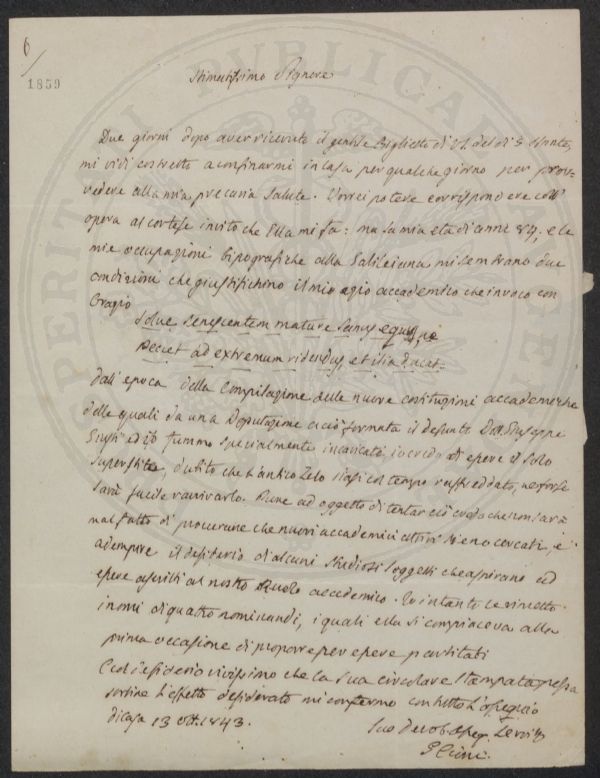 6
1859
Stimatissimo Signore
Due giorni dopo aver ricevuto il gentile Biglietto di V.S. del dì 3 stante,
mi vidi costretto a confinarmi in Casa per qualche giorno per prov-
vedere alla mia precaria Salute. Vorrei potere corrispondere coll'
opera al cortese invito che Ella mi fa: ma la mia età di anni 84, e le
mie occupazioni tipografiche alla Galileiana mi sembrano due
condizioni che giustifichino il mio ozio accademico che invoco con
Orazio
Solve Senescentem mature Sanus equum, ne
Peccet ad extremum ridendus, et ilia ducat.
dall'epoca della Compilazione delle nuove costituzioni accademiche
delle quali da una Deputazione a ciò formata il defunto Dott. Giuseppe
ed io fummo specialmente incaricati, io credo di essere il solo
superstite, dubito che l'antico Zelo siasi col tempo raffreddato, ne forse
sarà facile ravvivarlo. Pure ad oggetto di tentar ciò credo che non sarà
mal fatto di procurare che nuovi accademici attivi sieno cercati, e
adempire il desiderio di alcuni studiosi soggetti che aspirano ad
essere ascritti al nostro Ruolo accademico. Io intanto le rimetto
i nomi di quattro nominandi, i quali ella si compiacerà alla
prima occasione di proporre per essere partitati
Col desiderio vivissimo che la sua circolare stampata possa
sortire l'effetto desiderato mi confermo con tutto l'ossequio
di casa 13 Ott. 1843.
Suo Devot. Obbl. Servit